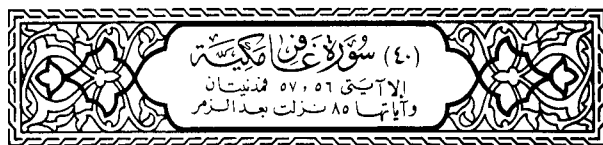 (٤٠) سورة غافر مكية
إلا آيتى ٥٦ ، ٥٧ فمدنيتان
وآياتها ٨٥ نزلت بعد الزمر